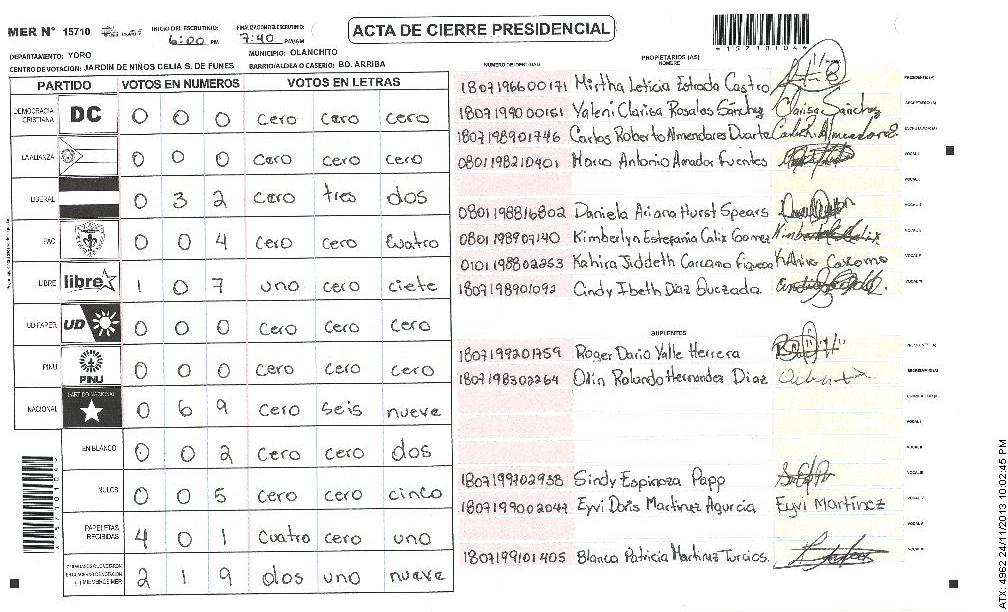 MER N° 15710
INICIO DEL ESCRUTINIO: 6:00 PM
FINALIZACION ESCRUTINIO: 7:40 PM/AM
ACTA DE CIERRE PRESIDENCIAL
*15710104*
DEPARTAMENTO: YORO
MUNICIPIO: OLANCHITO
CENTRO DE VOTACION: JARDIN DE NIÑOS CELIA S. DE FUNES
BARRIO/ALDEA O CASERIO: BO. ARRIBA
PARTIDO VOTOS EN NUMEROS VOTOS EN LETRAS
DEMOCRACIA CRISTIANA DC 0 0 0 cero cero cero
LA ALIANZA 0 0 0 cero cero cero
LIBERAL 0 3 2 cero tres dos
PAC 0 0 4 cero cero cuatro
LIBRE libre 1 0 7 uno cero ciete
UD FAPER UD 0 0 0 cero cero cero
PINU PINU 0 0 0 cero cero cero
NACIONAL PARTIDO NACIONAL 0 6 9 cero seis nueve
EN BLANCO 0 0 2 cero cero dos
NULOS 0 0 5 cero cero cinco
PAPELETAS RECIBIDAS 4 0 1 cuatro cero uno
2 1 9 dos uno nueve
NUMERO DE IDENTIDAD
PROPIETARIOS (AS)
NOMBRE
1807196600171 Mirtha Leticia Estrada Castro
1807199000151 Yaleni Clarisa Rosales Sánchez Clarisa Sánchez
1807198901746 Carlos Roberto Almendares Duarte
0801198210401 Marco Antonio Amador Fuentes
0801198816802 Daniela Ariana Hurst Spears
0801198907140 Kimberlyn Estefania Calix Gomez
0101198802253 Kahira Jiddeth Carcamo Figueroa
1807198901092 Cindy Ibeth Diaz Quezada
SUPLENTES
1807199201759 Roger Dario Valle Herrera
1807198302264 Olin Rolando Hernandez Diaz
1807199702938 Sindy Espinoza Papp
1807199002047 Eyvi Doris Martinez Agurcia Eyvi Martínez
1807199101405 Blanca Patricia Martinez Turcios
ATX: 4962 24/11/2013 10:02:45 PM